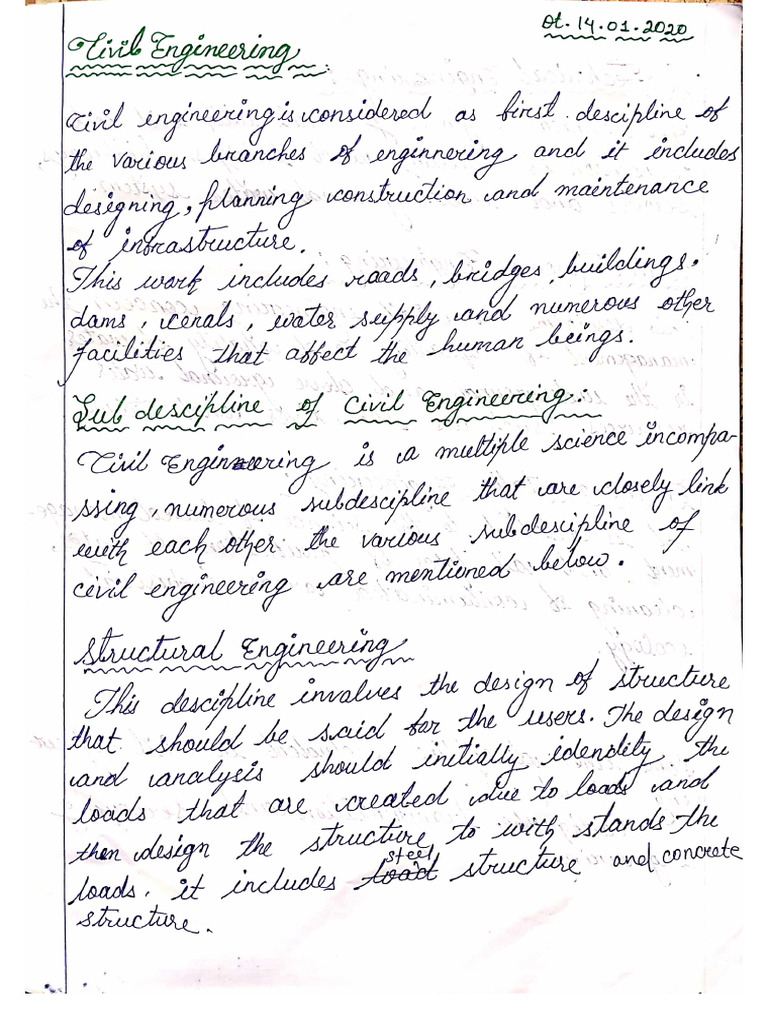 Dt. 14.01.2020
Civil Engineering
Civil engineering is considered as first descipline of
the various branches of enginnering and it includes
designing, planning construction and maintenance
of infrastructure.
This work includes roads, bridges, buildings.
dams, cenals, water supply and numerous other
facilities that affect the human beings.
Sub descipline of Civil Engineering:
Civil Engineering is a multiple science incompa-
ssing, numerous subdescipline that are closely link
with each other the various subdescipline of
civil engineering are mentioned below.
Structural Engineering
This descipline involves the design of structure
that should be said for the users. The design
and analysis should initially idendity the
loads that are created due to loads and
then design the structure to with stands the
loads. it includes steel structure and concrete
structure.